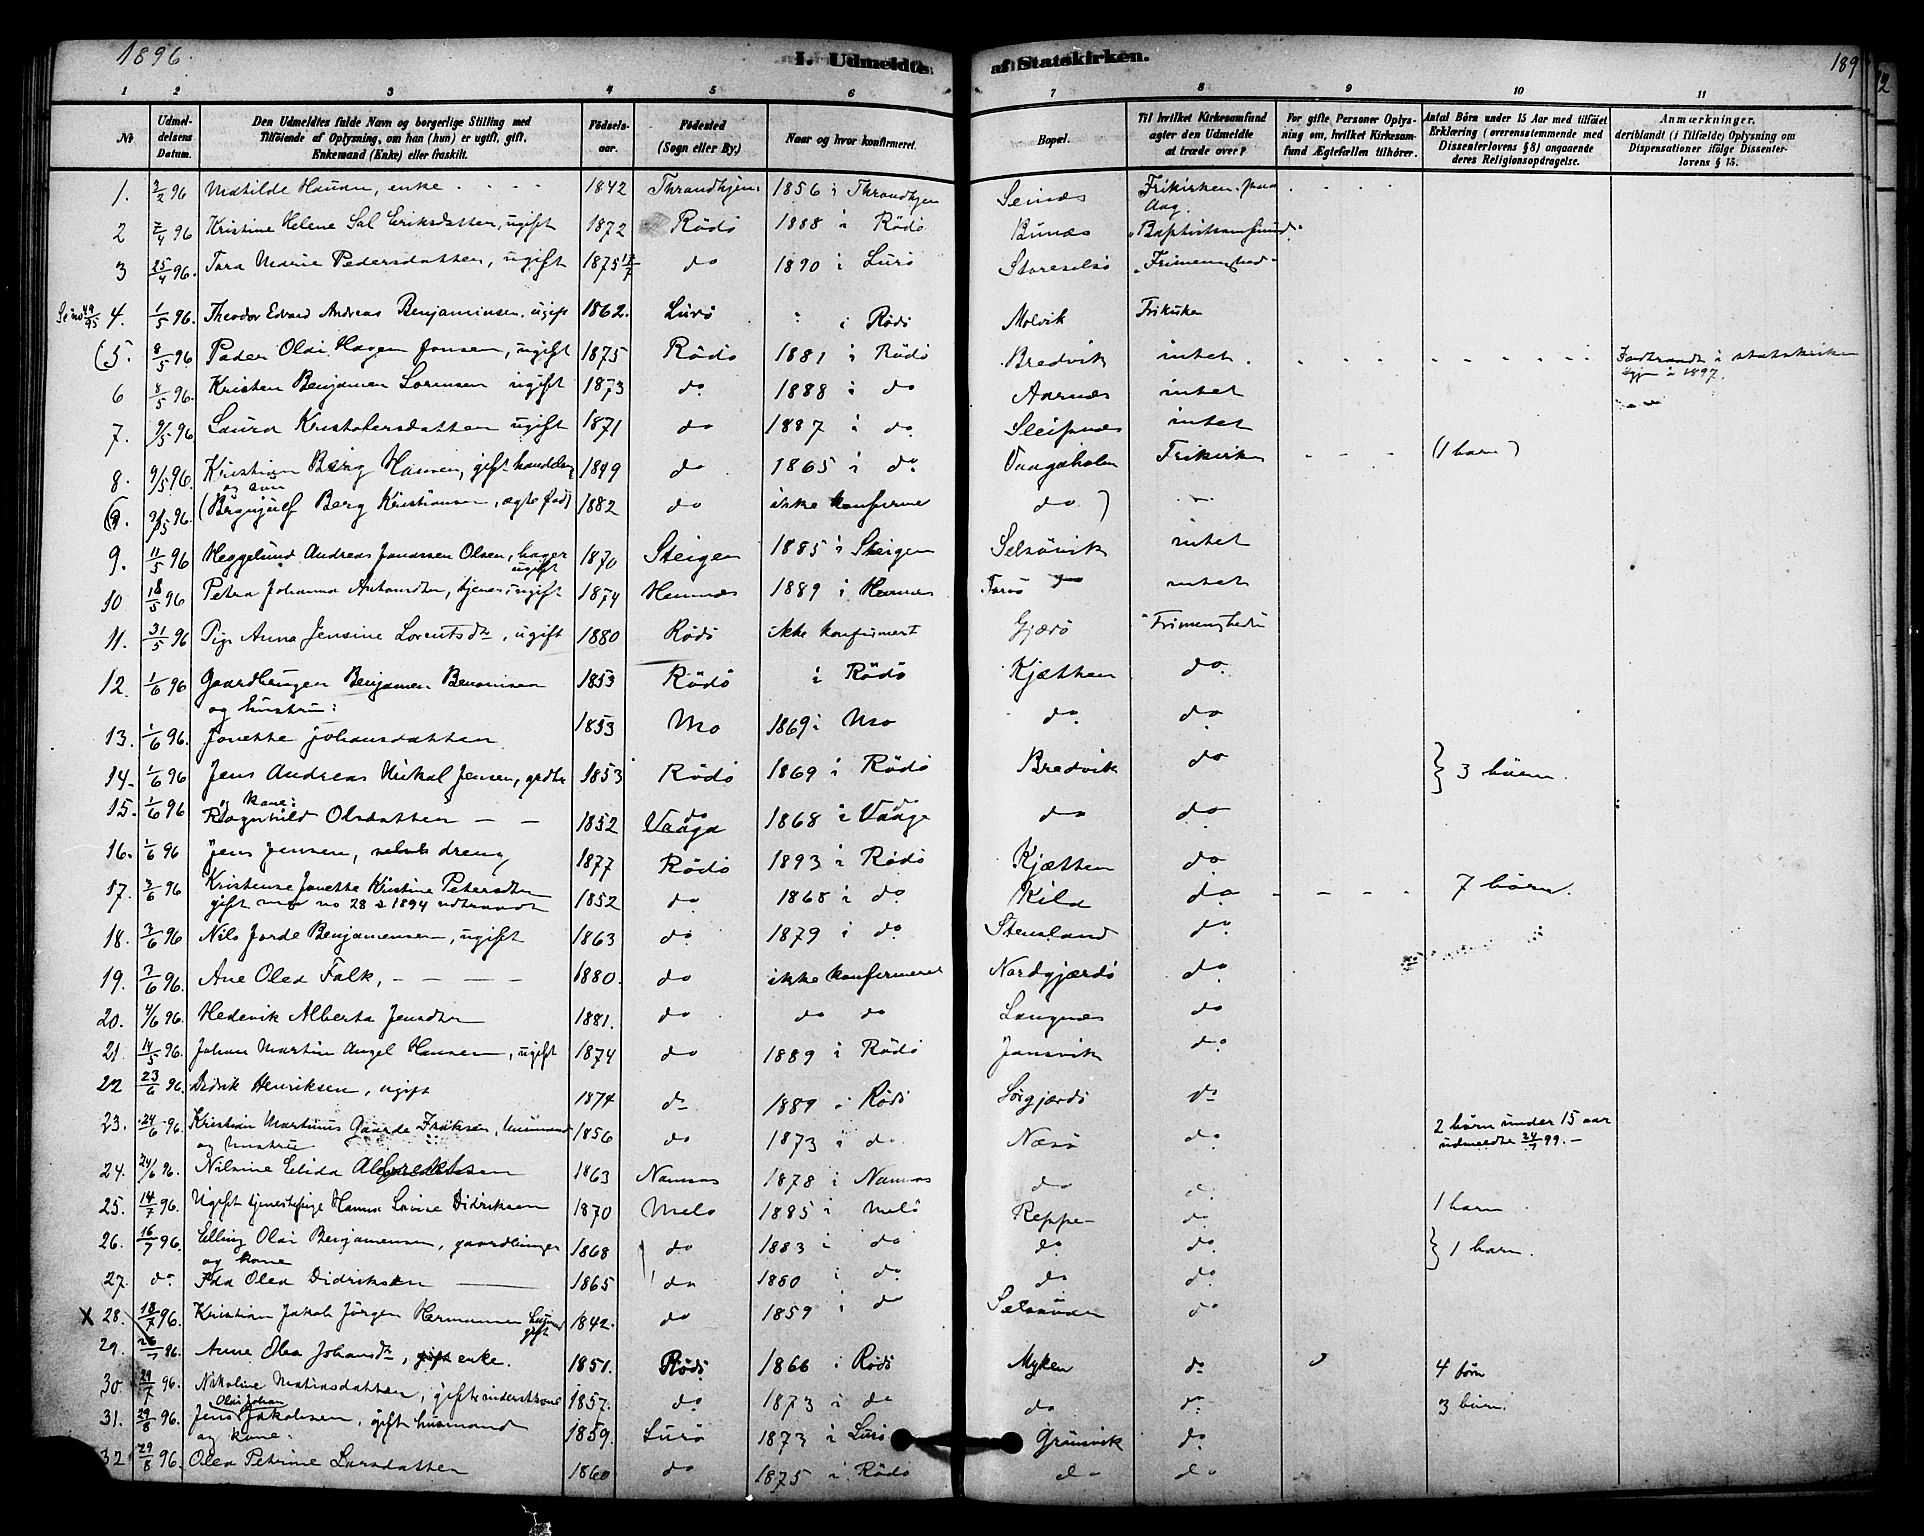 1896.
I. Udmeldte af Statskirken.
189
1 2 3 4 5 6 7 8 9 10 11
Nr
Udmeldelsens Datum.
Den Udmeldtes fulde Navn og borgerlige Stilling med
Tilföiende af Oplysning, om han (hun) er ugift, gift,
Enkemand (Enke) eller fraskilt.
Födselsaar.
Födested
(Sogn eller By.)
Naar og hvor konfirmeret.
Bopæl.
Til hvilket Kirkesamfund
agter den Udmeldte
at træde over?
For gifte Personer Oplysning om, hvilket Kirkesamfund Ægtefællen tilhörer.
Antal Börn under 15 Aar med tilföiet
Erklæring (overensstemmende med
Dissenterlovens § 8) angaaende
deres Religionsopdragelse.
Anmærkninger,
deriblandt (i Tilfælde) Oplysning om
Dispensationer ifölge Dissenterlovens § 15.
1. 2/2 96 Matilde Hauan, enke 1842 Throndhjem 1856 i Throndhjem Seines Frikirken paa Aag.
2 7/4 96 Kristine Helene Sal Eriksdatter, ugift 1872 Rödö 1888 i Rödö Bunæs "Baptistsamfund"
3 25/4 96. Tora Marie Pedersdatter, ugift 1875 do 1890 i Lurö Storeselsö "Frimenighed"
4. 1/5 96. Theodor Edvard Andreas Benjaminsen, ugift 1862. Lurö i Rödö Molvik Frikirken
(5. 8/5 96 Peder Olai Hagen Jensen, ugift 1875 Rödö 1881 i Rödö Bredvik intet. statskirken igjen i 1897.
6 8/5 96. Kristen Benjamin Sörensen ugift 1873 do 1888 i do Aarnes intet
7. 9/5 96 Laura Kristofersdatter ugift 1871 do 1887 i do. Sleipnes intet
8. 9/5 96. Kristian Berg Hansen, gift 1849 do 1865 i do. Vaagaholm Frikirken (1 barn)
og sön
9/5 96. (Brynjulf Berg Kristiansen, ægte född 1882 do ikke konfirme do)
9. 11/5 96 Heggelund Andreas Jonassen Olsen, bager ugift 1870 Steigen 1885 i Steigen Selsövik intet
10 18/5 96 Petra Johanna Antonsdtr, tjener, ugift 1874 Hemnes 1889 i Hemnes intet
11. 31/5 96 Pige Anna Jensine Lorentsdtr, ugift 1880 Rödö ikke konfirmert Gjærö "Frimenighed"
12. 1/6 96 Gaardbruger Benjamin Benonisen 1853 Rödö i Rödö Kjætten do.
og hustru:
13. 1/6 96. Jonette Johansdatter 1853 Mo 1869 i Mo do. do
14. 1/6 96 Jens Andreas Nikal Jensen, grdbr 1853 Rödö 1869 i Rödö Bredvik do } 3 börn.
og kone:
15. 1/6 96 Ragnhild Olsdatter 1852 Vaaga 1868 i Vaage do do
16. 1/6 96 Jens Jensen, dreng 1877 Rödö 1893 i Rödö Kjætten do.
17. 3/6 96 Kristense Jonette Kristine Petersdtr 1852 do. 1868 i do. Kila do 7 börn.
gift med no 28 i 1894 udtraadt
18. 3/6 96 Nils Jorde Benjaminsen, ugift 1863 do. 1879 i do. Stensland do.
19. 3/6 96. Ane Olea Falk, 1880. do ikke konfirmeret Nordgjærö do
20. 4/6 96. Hedevik Alberta Jensdtr 1881. do do do Langnes do
21. 14/5 96. Johan Martin Angel Hansen, ugift 1874 do 1889 i Rödö Jonsvik do.
22 23/6 96. Didrik Henriksen, ugift 1874 do 1889 i Rödö Sörgjærö do
23. 24/6 96 Kristian Martinus Gjærde Eriksen, husmand 1856 do 1873 i do Næsö do 2 börn under 15 aar
og hustru udmeldte 24/7 99. —
24. 24/6 96. Nilsine Elida Albrektsen 1863 Namsos 1878 i Namsos do
25. 14/7 96. Ugift tjenestepige Hanna Lovise Didriksen 1870 Melö 1885 i Melö Reppen do 1 barn.
26. 16/7 96. Elling Olai Benjaminsen, gaardbruger 1868 do 1883 i do do. do. } 1 barn.
og kone
27. do. Ida Olea Didriksen 1865 do 1880 i do. do do.
X 28. 18/7 96. Kristian Jakob Jörgen Hermansen gift 1842. do 1859 i do Selsöen do
29. 96. Anne Olea Johansdtr, gift enke. 1851. Rödö 1866 i Rödö Myken do 4 börn
30. 29/7 96. Nikoline Matiasdatter, gift 1857. do. 1873 i do do do 3 börn.
Olai Johan
31. 29/8 96. Jens Jakobsen, gift husmand 1859. Lurö 1873 i Lurö Grönsvik do
og kone:
32 29/8 96. Olea Petrine Larsdatter 1860 do 1875 i Rödö do do